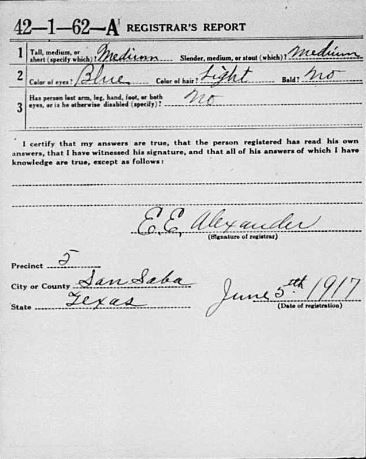 42-1-62-A REGISTRAR'S REPORT
1 Tall, medium, or short (specify which)? Medium Slender, medium, or stout (which)? Medium
2 Color of eyes? Blue Color of hair? Light Bald? No
3 Has person lost arm, leg, hand, foot, or both eyes, or is he otherwise disabled (specify)? No
I certify that my answers are true, that the person registered has read his own
answers, that I have witnessed his signature, and that all of his answers of which I have
knowledge are true, except as follows:
E. E. Alexander
(Signature of registrar)
Precinct 5
City or County San Saba
State Texas
June 5th 1917
(Date of registration)